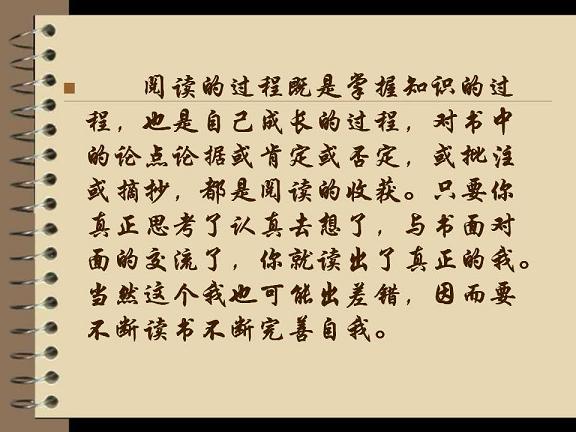 阅读的过程既是掌握知识的过
程，也是自己成长的过程，对书中
的论点论据或肯定或否定，或批注
或摘抄，都是阅读的收获。只要你
真正思考了认真去想了，与书面对
面的交流了，你就读出了真正的我。
当然这个我也可能出差错，因而要
不断读书不断完善自我。